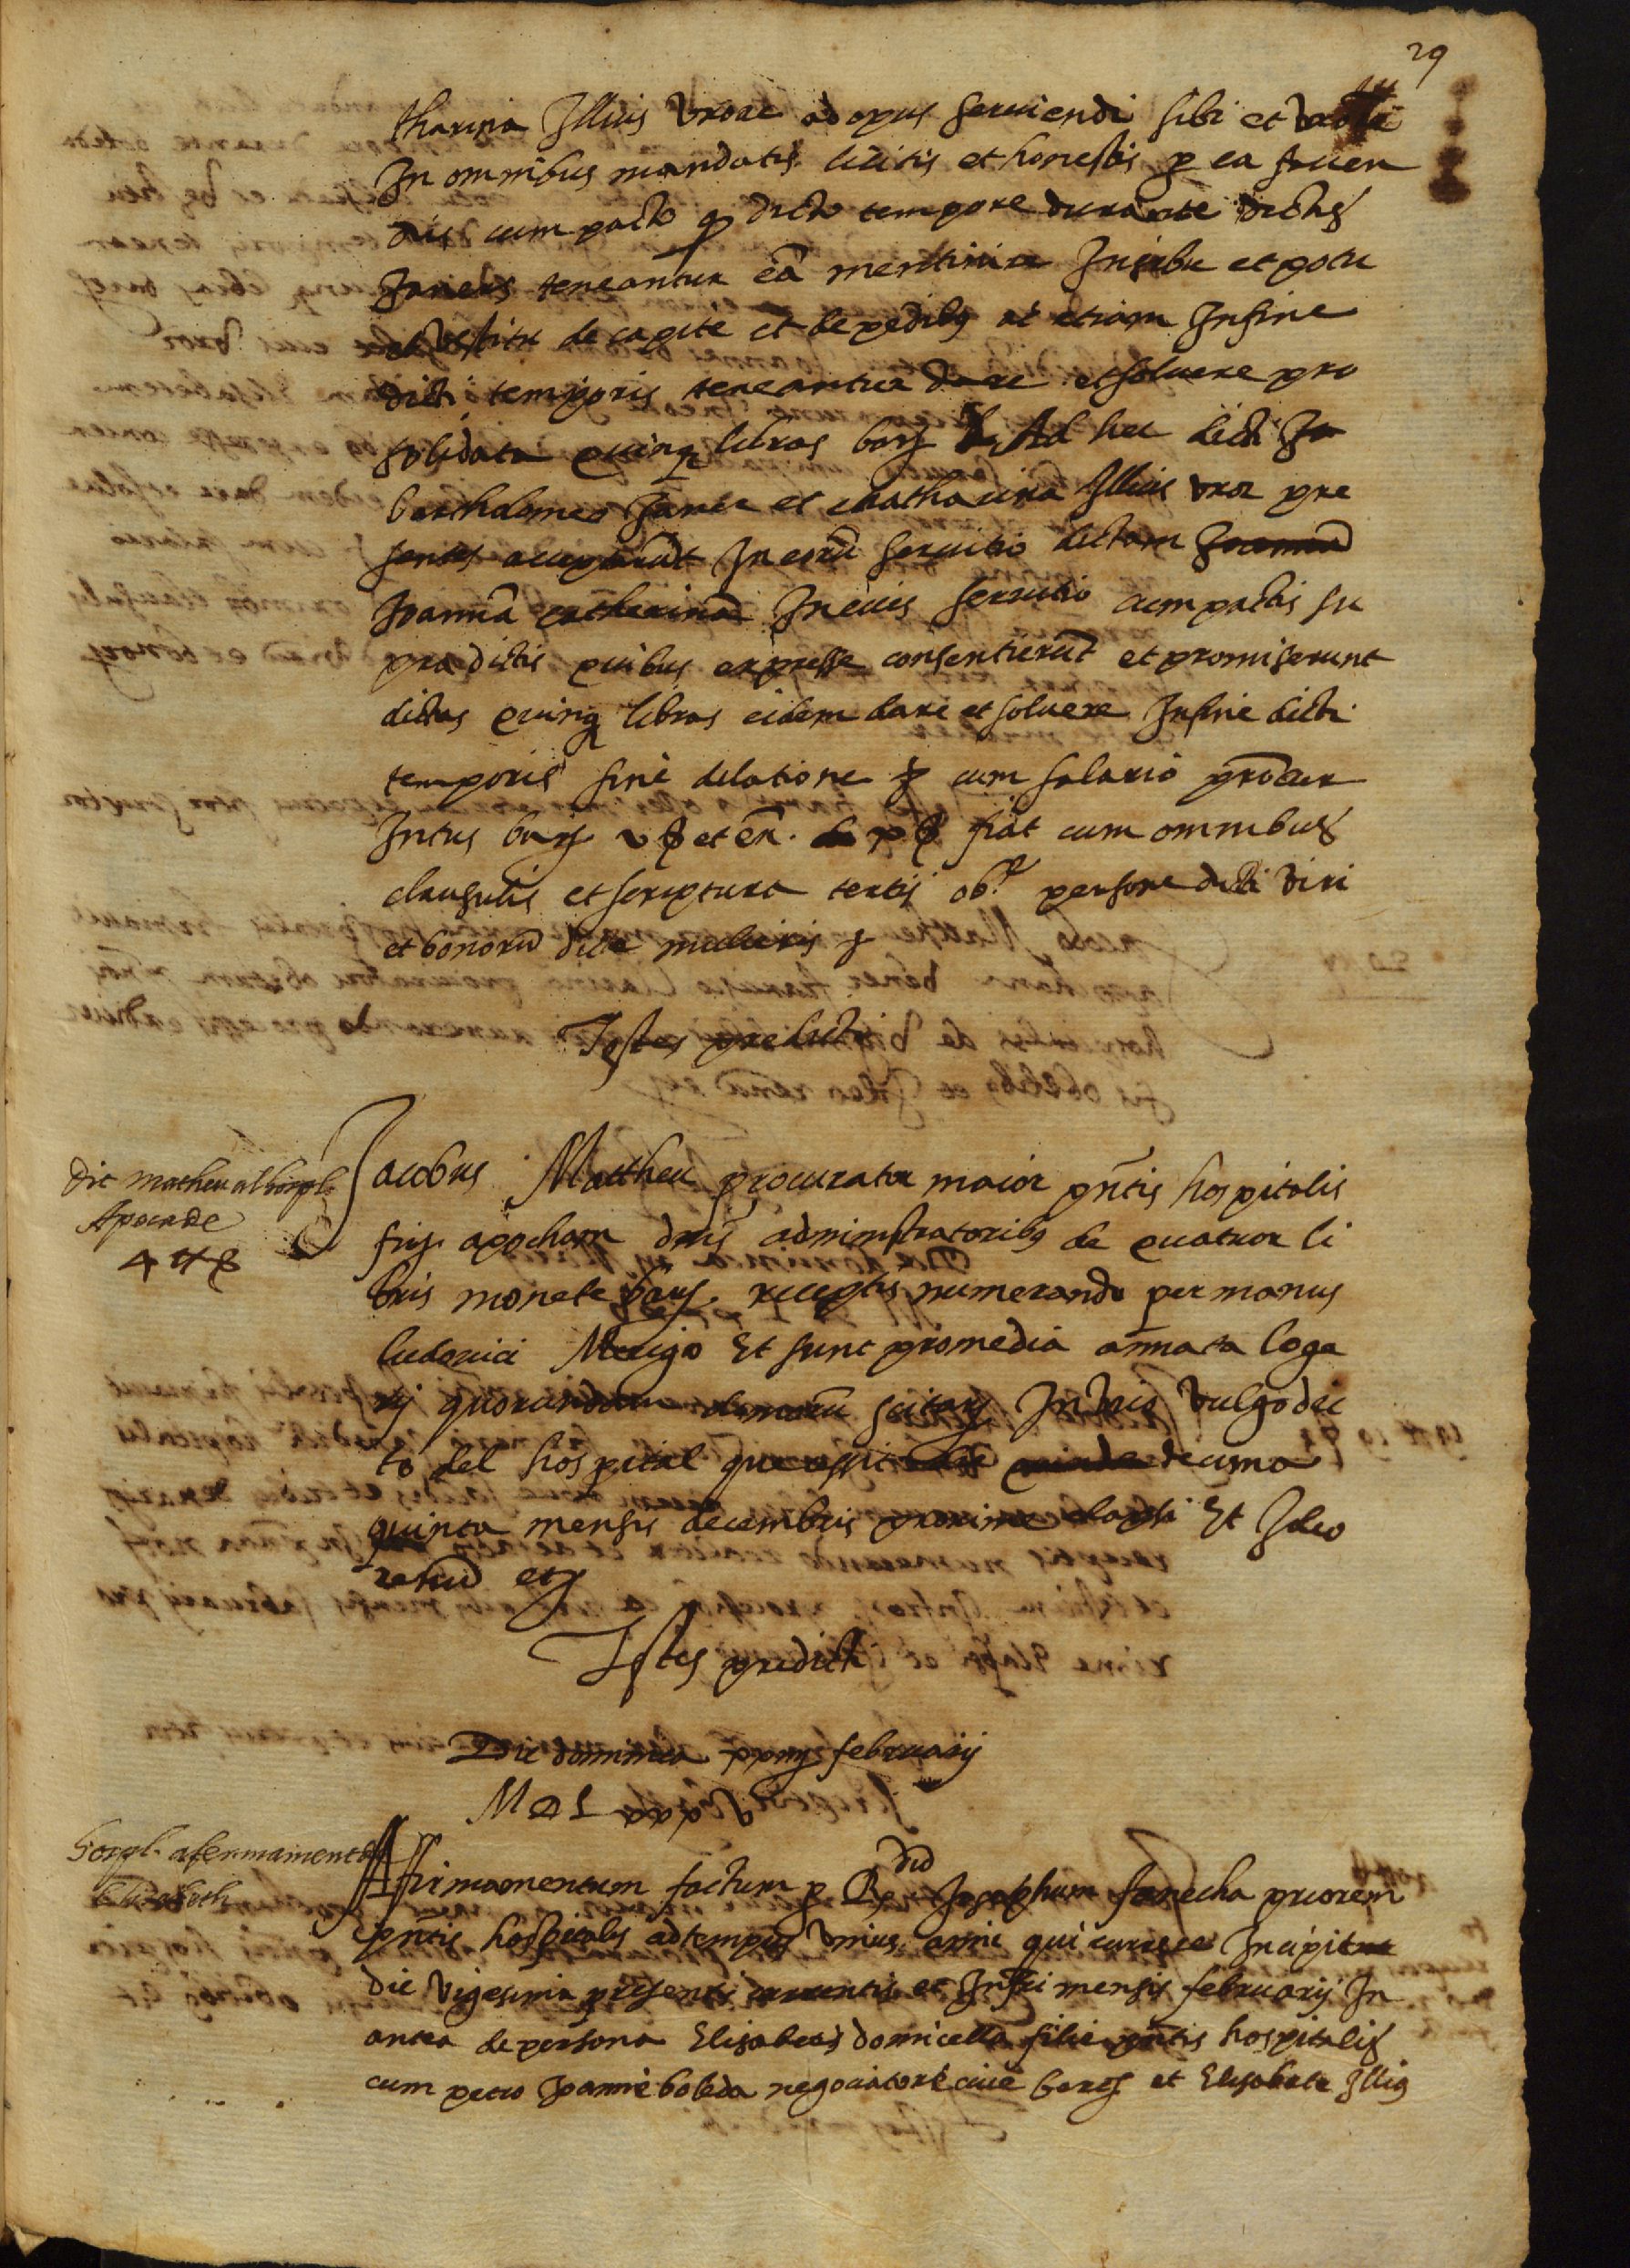 29
tharina Illius uxore ad opus seruiendi sibi et
In omnibus mandatis licitis et honestis p ea fiuen
dis cum pacto q dicto tempore durante dictus
Janer teneantur eā In sibu et potu
et vestitu de capite et de pedibus ac etiam In fine
dicti temporis teneantur dare et soluere pro
solidata quinq libras barz Ad hec dicti Jo
bartholomeo Janer et chatharina Illius uxor pre
sentes acceptarūt In eorū seruitio dictam Joannā
Joannā catherinā In eius seruitio cum pactis su
pradictis quibus expresse consentierūt et promiserunt
dictas quinq libras eidem dare et soluere In fine dicti
temporis sine dilatione cum salario procur
Intus barz et fiāt cum omnibus
clausulis et scriptura tertij ob.e persone dicti viri
et bonorū dicte mulieris
Testes predicti
Dit matheu al hospl
Apoca de
4 ₶
Jacobus Mattheu procurator maior pn̄tis hospitalis
firj. apocham dn̄is administratoribus de quatuor li
bris monete barz. receptis numerando per manus
ludouici Merigo Et sunt pro media annata loga
rij quorundam domorū sitarj In vico vulgo dic
to del hospital que die decima
quinta mensis decembris proxime elapsi Et Ideo
renūd etz
Testes predicti
Die dominica xxiiij februarij
M D L xxx v
hospl. afermament
Elizabeth
Affirmamentum factum p R.dū Josephum fanecha priorem
pn̄tis hospitalis ad tempus vnius anni qui currere Incipit
die vigesima presenti currentis et Infrī mensis februarij In
antea de persona Elisabets domicella filie pn̄tis hospitalis
cum petro Joanne boleda negociatore ciue barz et Elisabete Illius